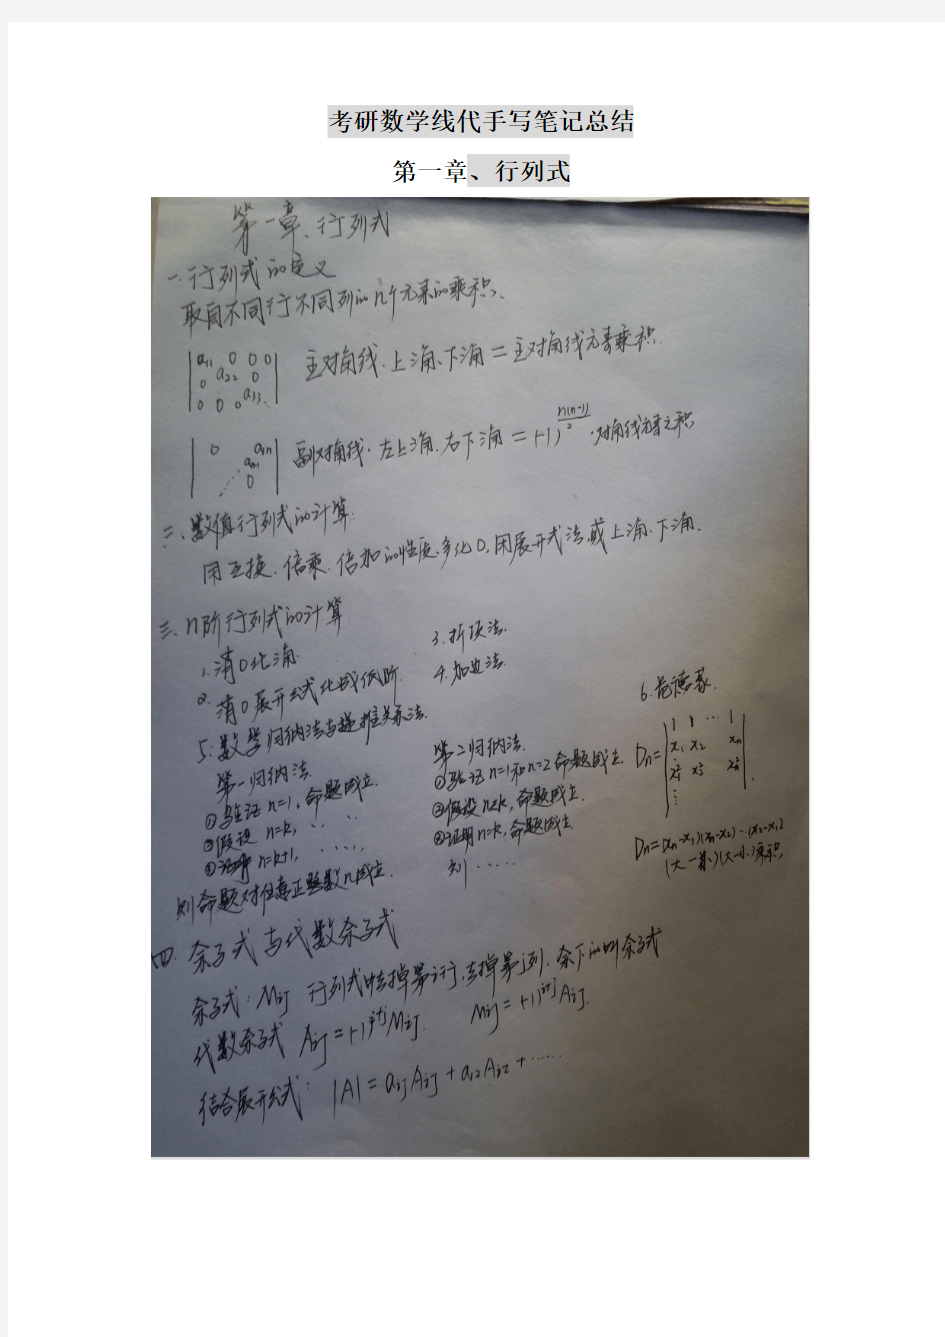 考研数学线代手写笔记总结
第一章、行列式
第一章、行列式
一、行列式的定义
取自不同行不同列的n个元素的乘积、
a11 0 0 0
0 a22 0
0 0 0 a33
主对角线、上三角、下三角=主对角线元素乘积.
0 a1n
0
副对角线、左上三角、右下三角=(-1)^(n(n-1)/2)·对角线元素之积
二、数值行列式的计算:
用互换、倍乘、倍加的性质、多化0,用展开式法或上三角、下三角.
三、n阶行列式的计算
1、消0化三角.
2. 消0展开公式化成低阶.
3. 拆项法.
4. 加边法.
5. 数学归纳法与递推关系法.
第一归纳法.
①验证n=1,命题成立.
②假设n=k,
③证明n=k+1,
则命题对任意正整数n成立.
第二归纳法.
①验证n=1和n=2命题成立.
②假设n<k,命题成立.
③证明n=k,命题成立.
则……
6. 范德蒙.
Dn=
1 1 … 1
x1 x2 xn
x1² x2² xn²
Dn=(xn-x1)(xn-x2)…(x2-x1)
(大-小)(大-小)乘积
四. 余子式与代数余子式
余子式:Mij 行列式中去掉第i行,去掉第j列,余下的叫余子式
代数余子式 Aij=(-1)^(i+j)Mij. Mij=(-1)^(i+j)Aij.
结合展开公式: |A|=aijAij+ai2Ai2+……